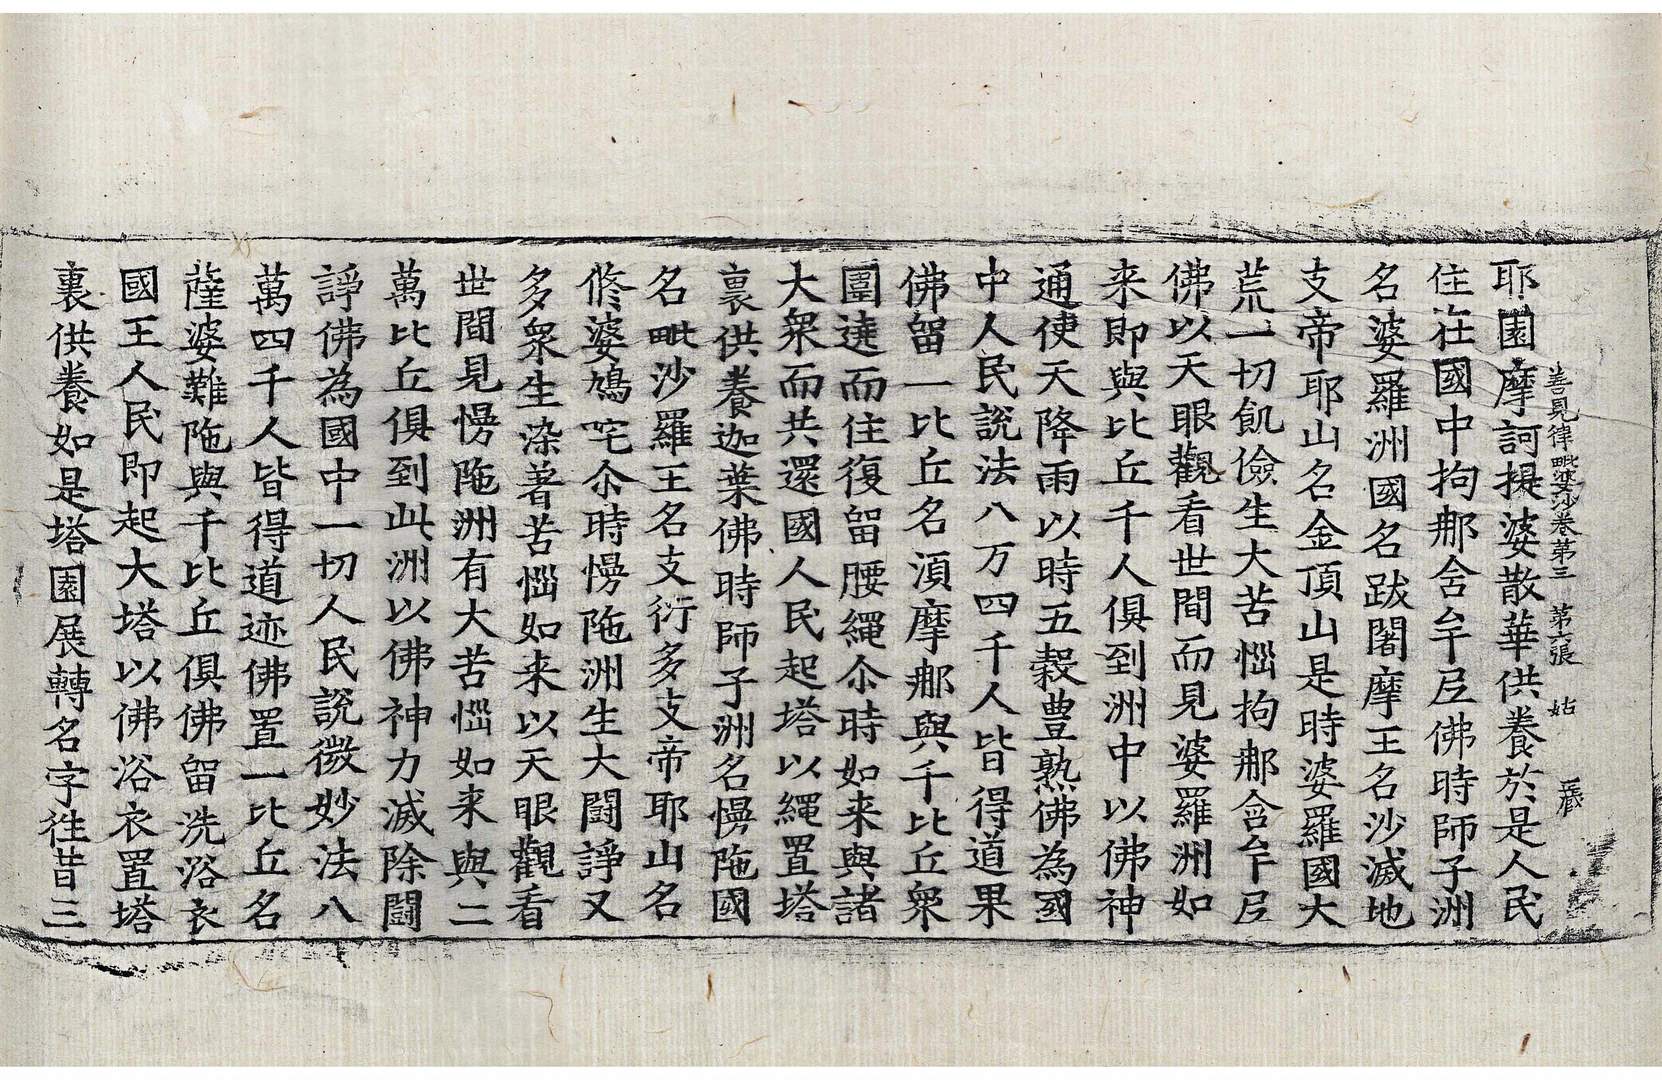 善見律毗婆沙卷第三 第六張 姑
耶園摩訶提婆散華供養於是人民
住在國中拘那含牟尼佛時師子洲
名婆羅洲國名跋闍摩王名沙滅地
支帝耶山名金頂山是時婆羅國大
荒一切飢儉生大苦惱拘那含牟尼
佛以天眼觀看世間而見婆羅洲如
来即與比丘千人俱到洲中以佛神
通使天降雨以時五穀豊熟佛為國
中人民說法八万四千人皆得道果
佛留一比丘名湏摩那與千比丘衆
圍遶而住復留腰繩尒時如来與諸
大衆而共還國人民起塔以繩置塔
裏供養迦葉佛時師子洲名慢陁國
名毗沙羅王名支衍多支帝耶山名
修婆鳩咤尒時慢陁洲生大闘諍又
多衆生染著苦惱如来以天眼觀看
世間見慢陁洲有大苦惱如来與二
萬比丘俱到此洲以佛神力滅除闘
諍佛為國中一切人民說微妙法八
萬四千人皆得道迹佛置一比丘名
薩婆難陁與千比丘俱佛留洗浴衣
國王人民即起大塔以佛浴衣置塔
裏供養如是塔園展轉名字徃昔三